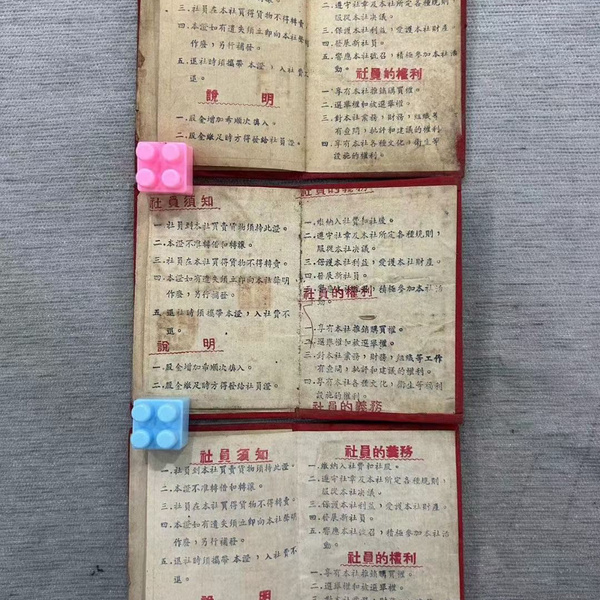 三.社員在本社買得貨物不得轉賣
四.本證如有遺失須立即向本社聲明
作廢，另行補發。
五.退社時須攜帶本證，入社費不
退。
說明
一.股金增加希順次填入。
二.股金繳足時方得發給社員證。
二.遵守社章及本社所定各種規則，
服從本社決議。
三.保護本社利益，愛護本社財產。
四.發展新社員。
五.響應本社號召，積極參加本社活
動。
社員的權利
一.享有本社推銷購買權。
二.選舉權和被選舉權。
三.對本社業務，財務，組織等
有查問，批評和建議的權利
四.享有本社各種文化，衛生等
設施的權利。
社員須知
一.社員到本社買賣貨物須持此證。
二.本證不准轉借和轉讓。
三.社員在本社買得貨物不得轉賣。
四.本證如有遺失須立即向本社聲明
作廢，另行補發。
五.退社時須攜帶本證，入社費不
退。
說明
一.股金增加希順次填入。
二.股金繳足時方得發給社員證。
社員的義務
一.繳納入社費和社股。
二.遵守社章及本社所定各種規則，
服從本社決議。
三.保護本社利益，愛護本社財產。
四.發展新社員。
五.響應本社號召，積極參加本社活
動。
社員的權利
一.享有本社推銷購買權。
二.選舉權和被選舉權。
三.對本社業務，財務，組織等工作
有查問，批評和建議的權利。
四.享有本社各種文化，衛生等福利
設施的權利。
社員的義務
社員須知
一.社員到本社買賣貨物須持此證。
二.本證不准轉借和轉讓。
三.社員在本社買得貨物不得轉賣。
四.本證如有遺失須立即向本社聲明
作廢，另行補發。
五.退社時須攜帶本證，入社費不
退。
說明
社員的義務
一.繳納入社費和社股。
二.遵守社章及本社所定各種規則，
服從本社決議。
三.保護本社利益，愛護本社財產。
四.發展新社員。
五.響應本社號召，積極參加本社活
動。
社員的權利
一.享有本社推銷購買權。
二.選舉權和被選舉權。
三.對本社業務，財務，組織等